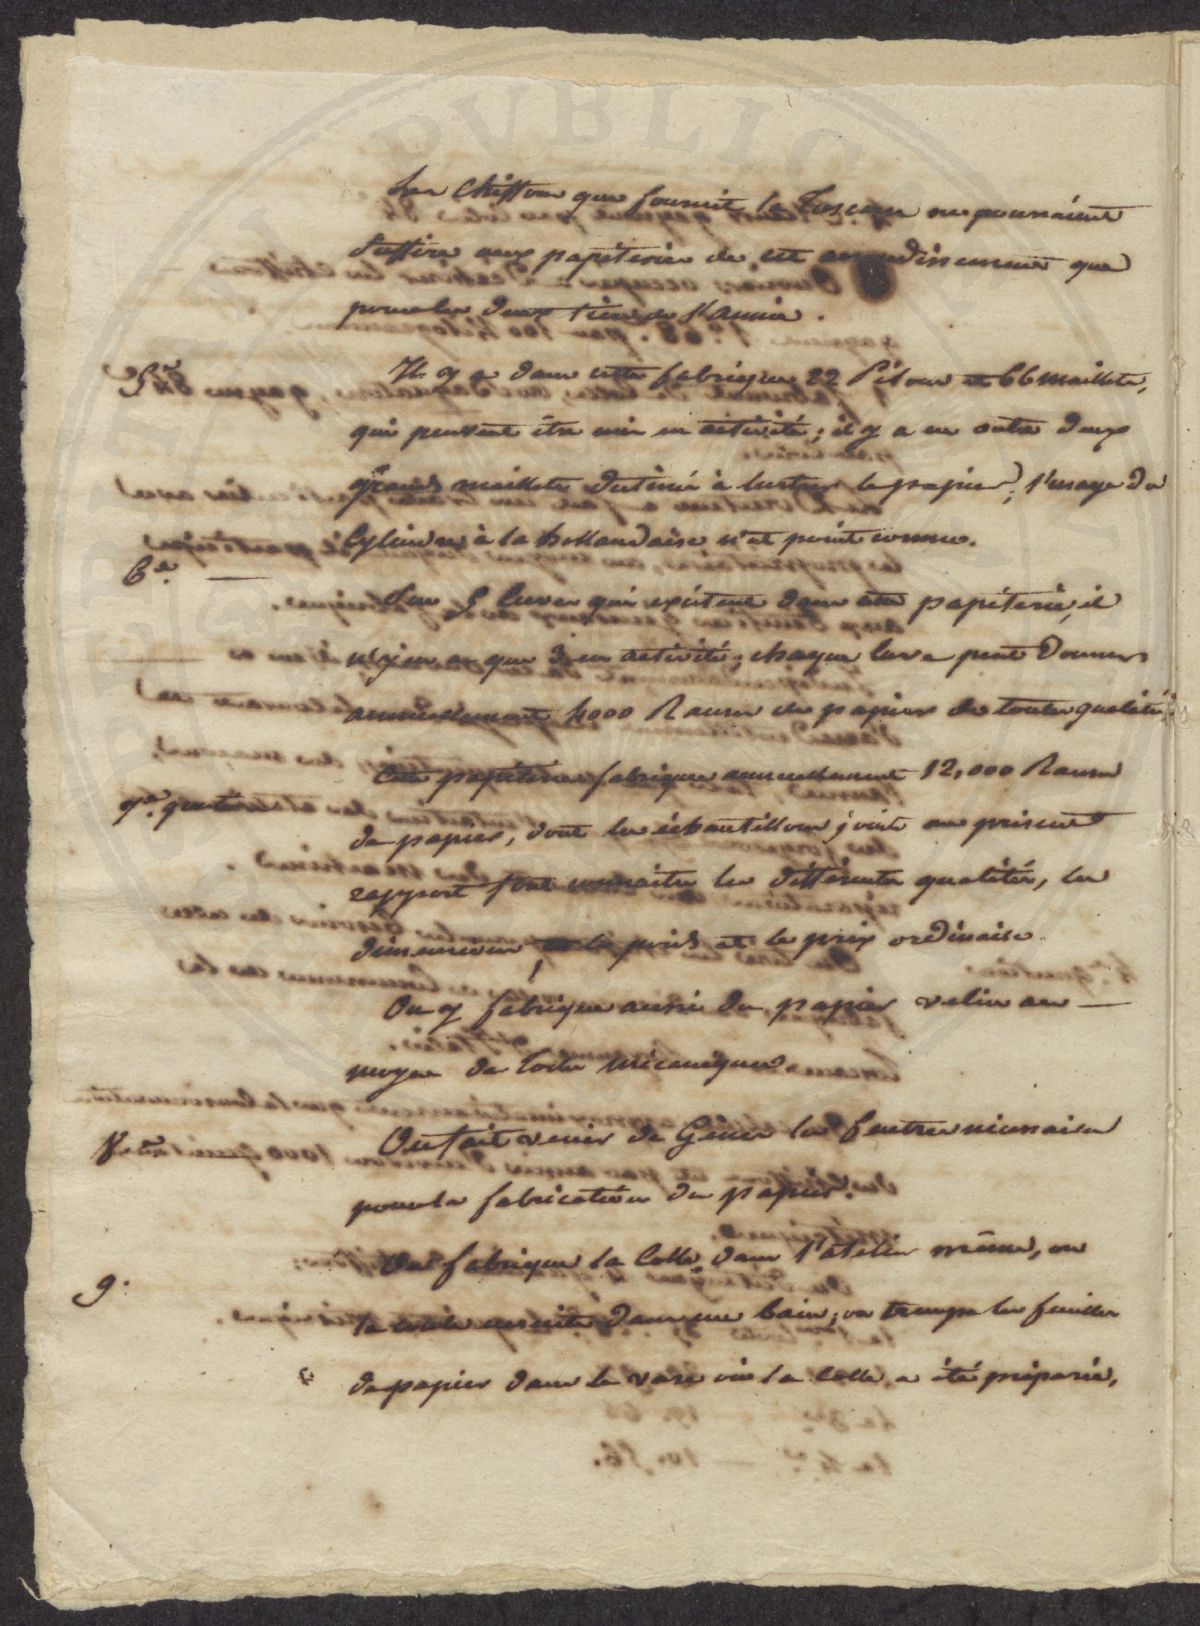 Les Chiffons que fournit la Toscane ne pourraient
suffire aux papiteries de cet arrondissement que
pour les deux tiers de l'année.
5.e Il y a dans cette fabrique 22 Pilons et 66 maillets,
qui peuvent être mis en activité; il y a en outre deux
grands maillets destinés à lustrer le papier; l'usage du
Cylindre à la hollandaise n'est point connu.
6.e Sur 5 Cuves qui existent dans cette papiterie, il
n'y en a que 3 en activité; chaque cuve peut donner
annuellement 4000 Rames de papier de toutes qualités.
Cette papiterie fabrique annuellement 12,000 Rames
7.e question de papier, dont les échantillons joints au présent
rapport font connaitre les différentes qualités, les
dimensions, le poids et le prix ordinaire.
On y fabrique aussi du papier velin au
moyen de toiles mécaniques
8.e On fait venir de Gênes les feutres nécessaires
pour la fabrication du papier.
9. On fabrique la Colle dans l'atelier même, on
la coule ensuite dans une bain; on trempe les feuilles
de papier dans le vase où la colle a été préparée,
PUBLIC